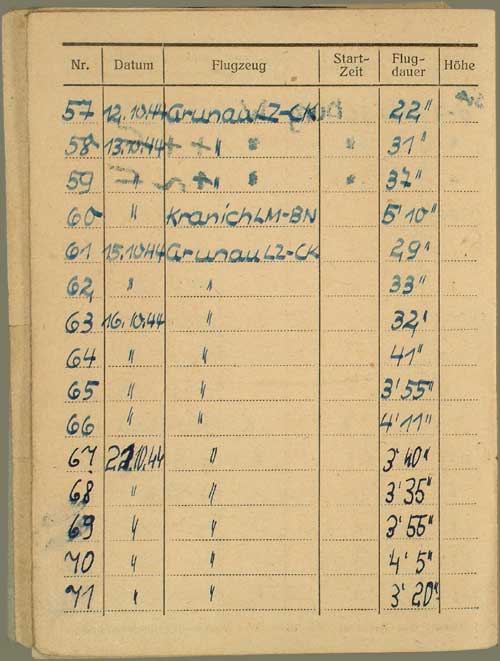 Nr. Datum Flugzeug Start-Zeit Flug-dauer Höhe
57 12.10.44 Grunau LZ-CK 22"
58 13.10.44 " " " 31"
59 " " " " 37"
60 " Kranich LM-BN 5'10"
61 15.10.44 Grunau LZ-CK 29"
62 " " 33"
63 16.10.44 " 32"
64 " " 41"
65 " " 3'55"
66 " " 4'11"
67 22.10.44 " 3'40"
68 " " 3'35"
69 " " 3'55"
70 " " 4'5"
71 " " 3'20"